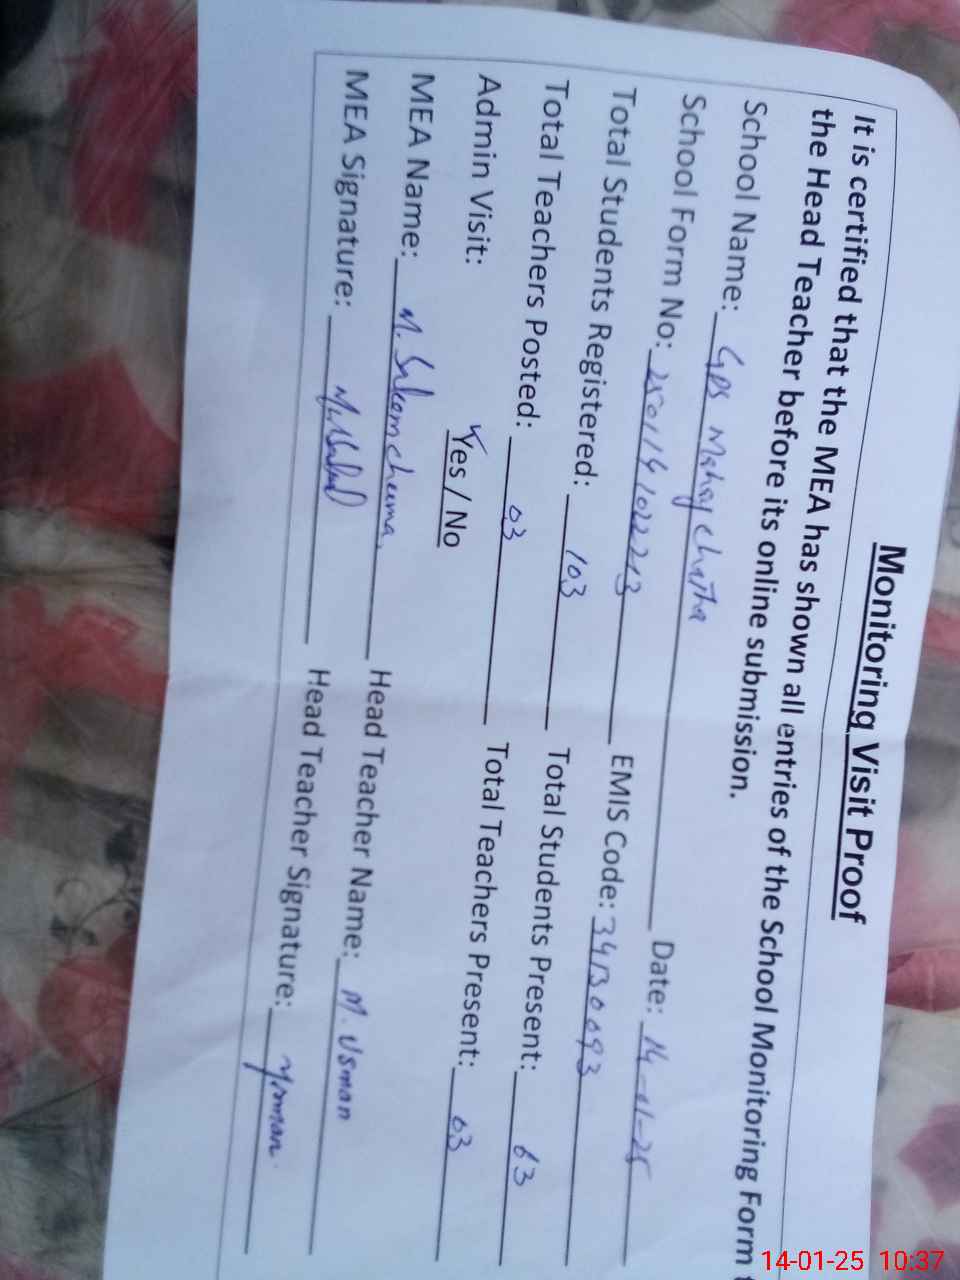 Monitoring Visit Proof
It is certified that the MEA has shown all entries of the School Monitoring Form
the Head Teacher before its online submission.
School Name: GPS Mahay Chatha Date: 14-01-25
School Form No: 250114102213 EMIS Code: 34130093
Total Students Registered: 103 Total Students Present: 63
Total Teachers Posted: 03 Total Teachers Present: 03
Admin Visit: Yes / No
MEA Name: M. Saleem cheema Head Teacher Name: M. Usman
MEA Signature: Head Teacher Signature: Usman
14-01-25 10:37